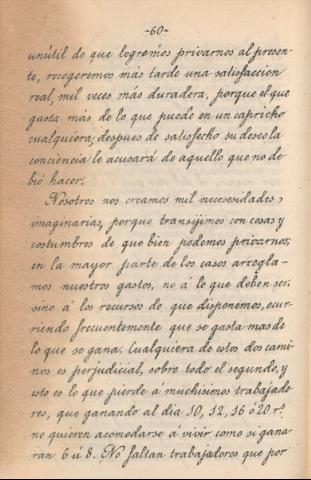 -60-
unútil de que logremos privarnos al presen-
te, recogeremos más tarde una satisfaccion
real, mil veces más duradera, porque el que
gasta más de lo que puede en un capricho
cualquiera, despues de satisfecho su deseo la
conciencia le acusará de aquello que no de-
bió hacer.
Nosotros nos creamos mil necesidades
imaginarias, porque transijimos con cosas y
costumbres de que bien podemos privarnos;
en la mayor parte de los casos arregla-
mos nuestros gastos, no á lo que deben ser,
sino á los recursos de que disponemos, ocur-
riendo frecuentemente que se gasta mas de
lo que se gana. Cualquiera de estos dos cami-
nos es perjudicial, sobre todo el segundo, y
esto es lo que pierde á muchisimos trabajado-
res, que ganando al dia 10, 12, 16 ó 20 rs.
no quieren acomodarse á vivir como si gana-
ran 6 ú 8. No faltan trabajadores que por